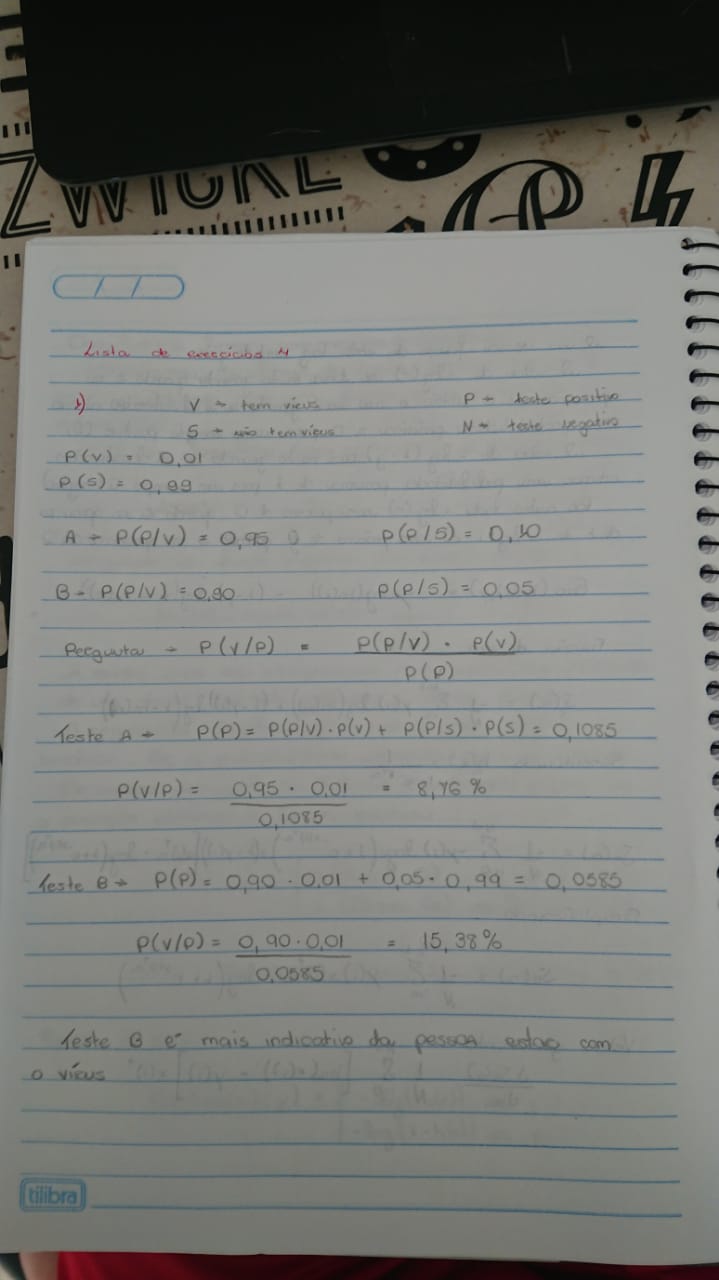 ZWICKE
Lista de exercícios 4
1) V → tem vírus P → teste positivo
S → não tem vírus N → teste negativo
P(V) = 0,01
P(S) = 0,99
A → P(P/V) = 0,95 P(P/S) = 0,10
B → P(P/V) = 0,90 P(P/S) = 0,05
Pergunta → P(V/P) = P(P/V) . P(V)
P(P)
Teste A → P(P) = P(P/V).P(V) + P(P/S).P(S) = 0,1085
P(V/P) = 0,95 . 0,01 = 8,76 %
0,1085
Teste B → P(P) = 0,90 . 0,01 + 0,05 . 0,99 = 0,0585
P(V/P) = 0,90 . 0,01 = 15,38 %
0,0585
Teste B é mais indicativo da pessoa estar com
o vírus
tilibra